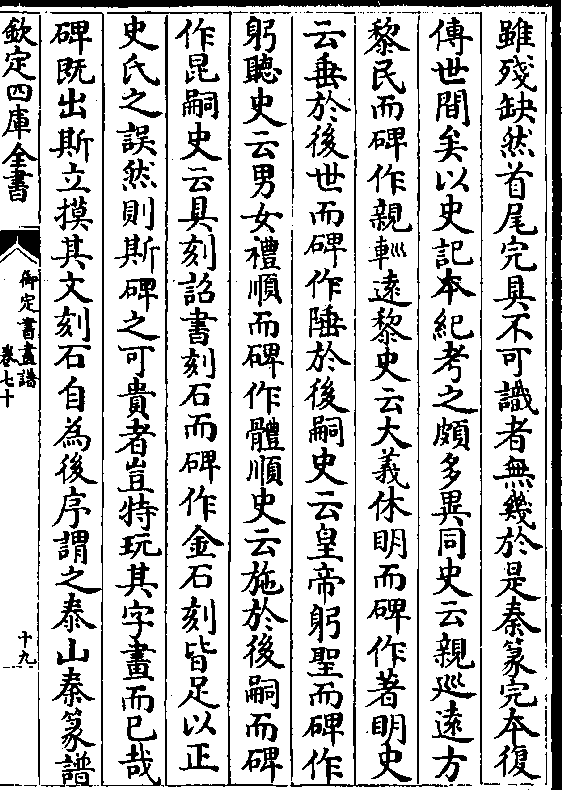 雖殘缺然首尾完具不可識者無幾於是秦篆完本復
傳世間矣以史記本紀考之頗多異同史云親巡遠方
黎民而碑作親𨊻遠黎史云大義休明而碑作著明史
云垂於後世而碑作陲於後嗣史云皇帝躬聖而碑作
躬聽史云男女禮順而碑作體順史云施於後嗣而碑
作昆嗣史云具刻詔書刻石而碑作金石刻皆足以正
史氏之誤然則斯碑之可貴者豈特玩其字畫而已哉
碑既出斯立摸其文刻石自為後序謂之泰山秦篆譜
欽定四庫全書
御定書畫譜
卷七十
十九